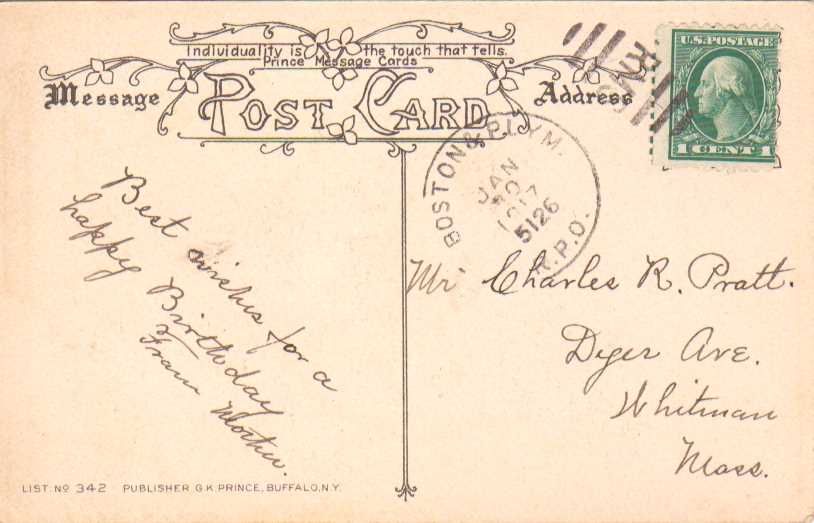 Individuality is the touch that tells.
Prince Message Cards
Message
POST CARD
Address
U.S. POSTAGE
1 CENT 1
RMS
BOSTON & PLYM.
JAN
20
1917
5126
R.P.O.
Best wishes for a
happy Birthday
From Mother.
Mr. Charles R. Pratt.
Dyer Ave.
Whitman
Mass.
LIST. NO 342 PUBLISHER G.K. PRINCE, BUFFALO, N.Y.